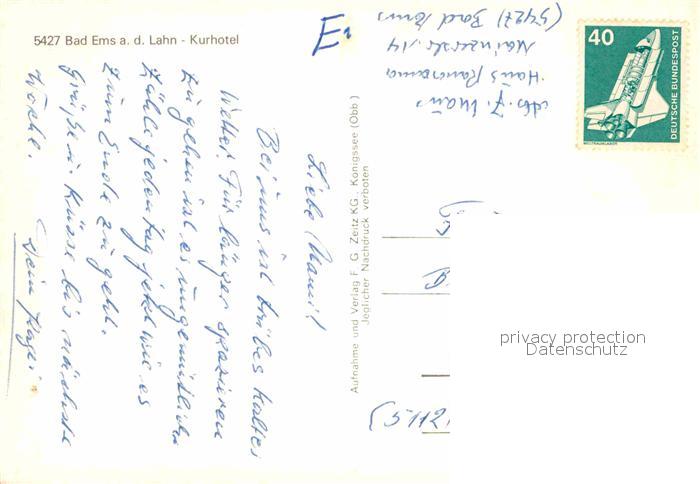 5427 Bad Ems a. d. Lahn - Kurhotel
E
40
DEUTSCHE BUNDESPOST
WELTRAUMLABOR
Abs. J.
Haus Panorama
Mainzerstr. 14
(5427) Bad Ems
Liebe Mami!
Bei uns ist trübes kaltes
Wetter. Für länger spazieren
zu gehen ist es ungemütlich
Zähle jeden Tag jetzt wie es
zum Ende zu geht.
Grüße u. Küsse bis nächste
Woche.
Dein
Aufnahme und Verlag F. G. Zeitz KG., Königssee (Obb.)
Jeglicher Nachdruck verboten
(5112
privacy protection
Datenschutz